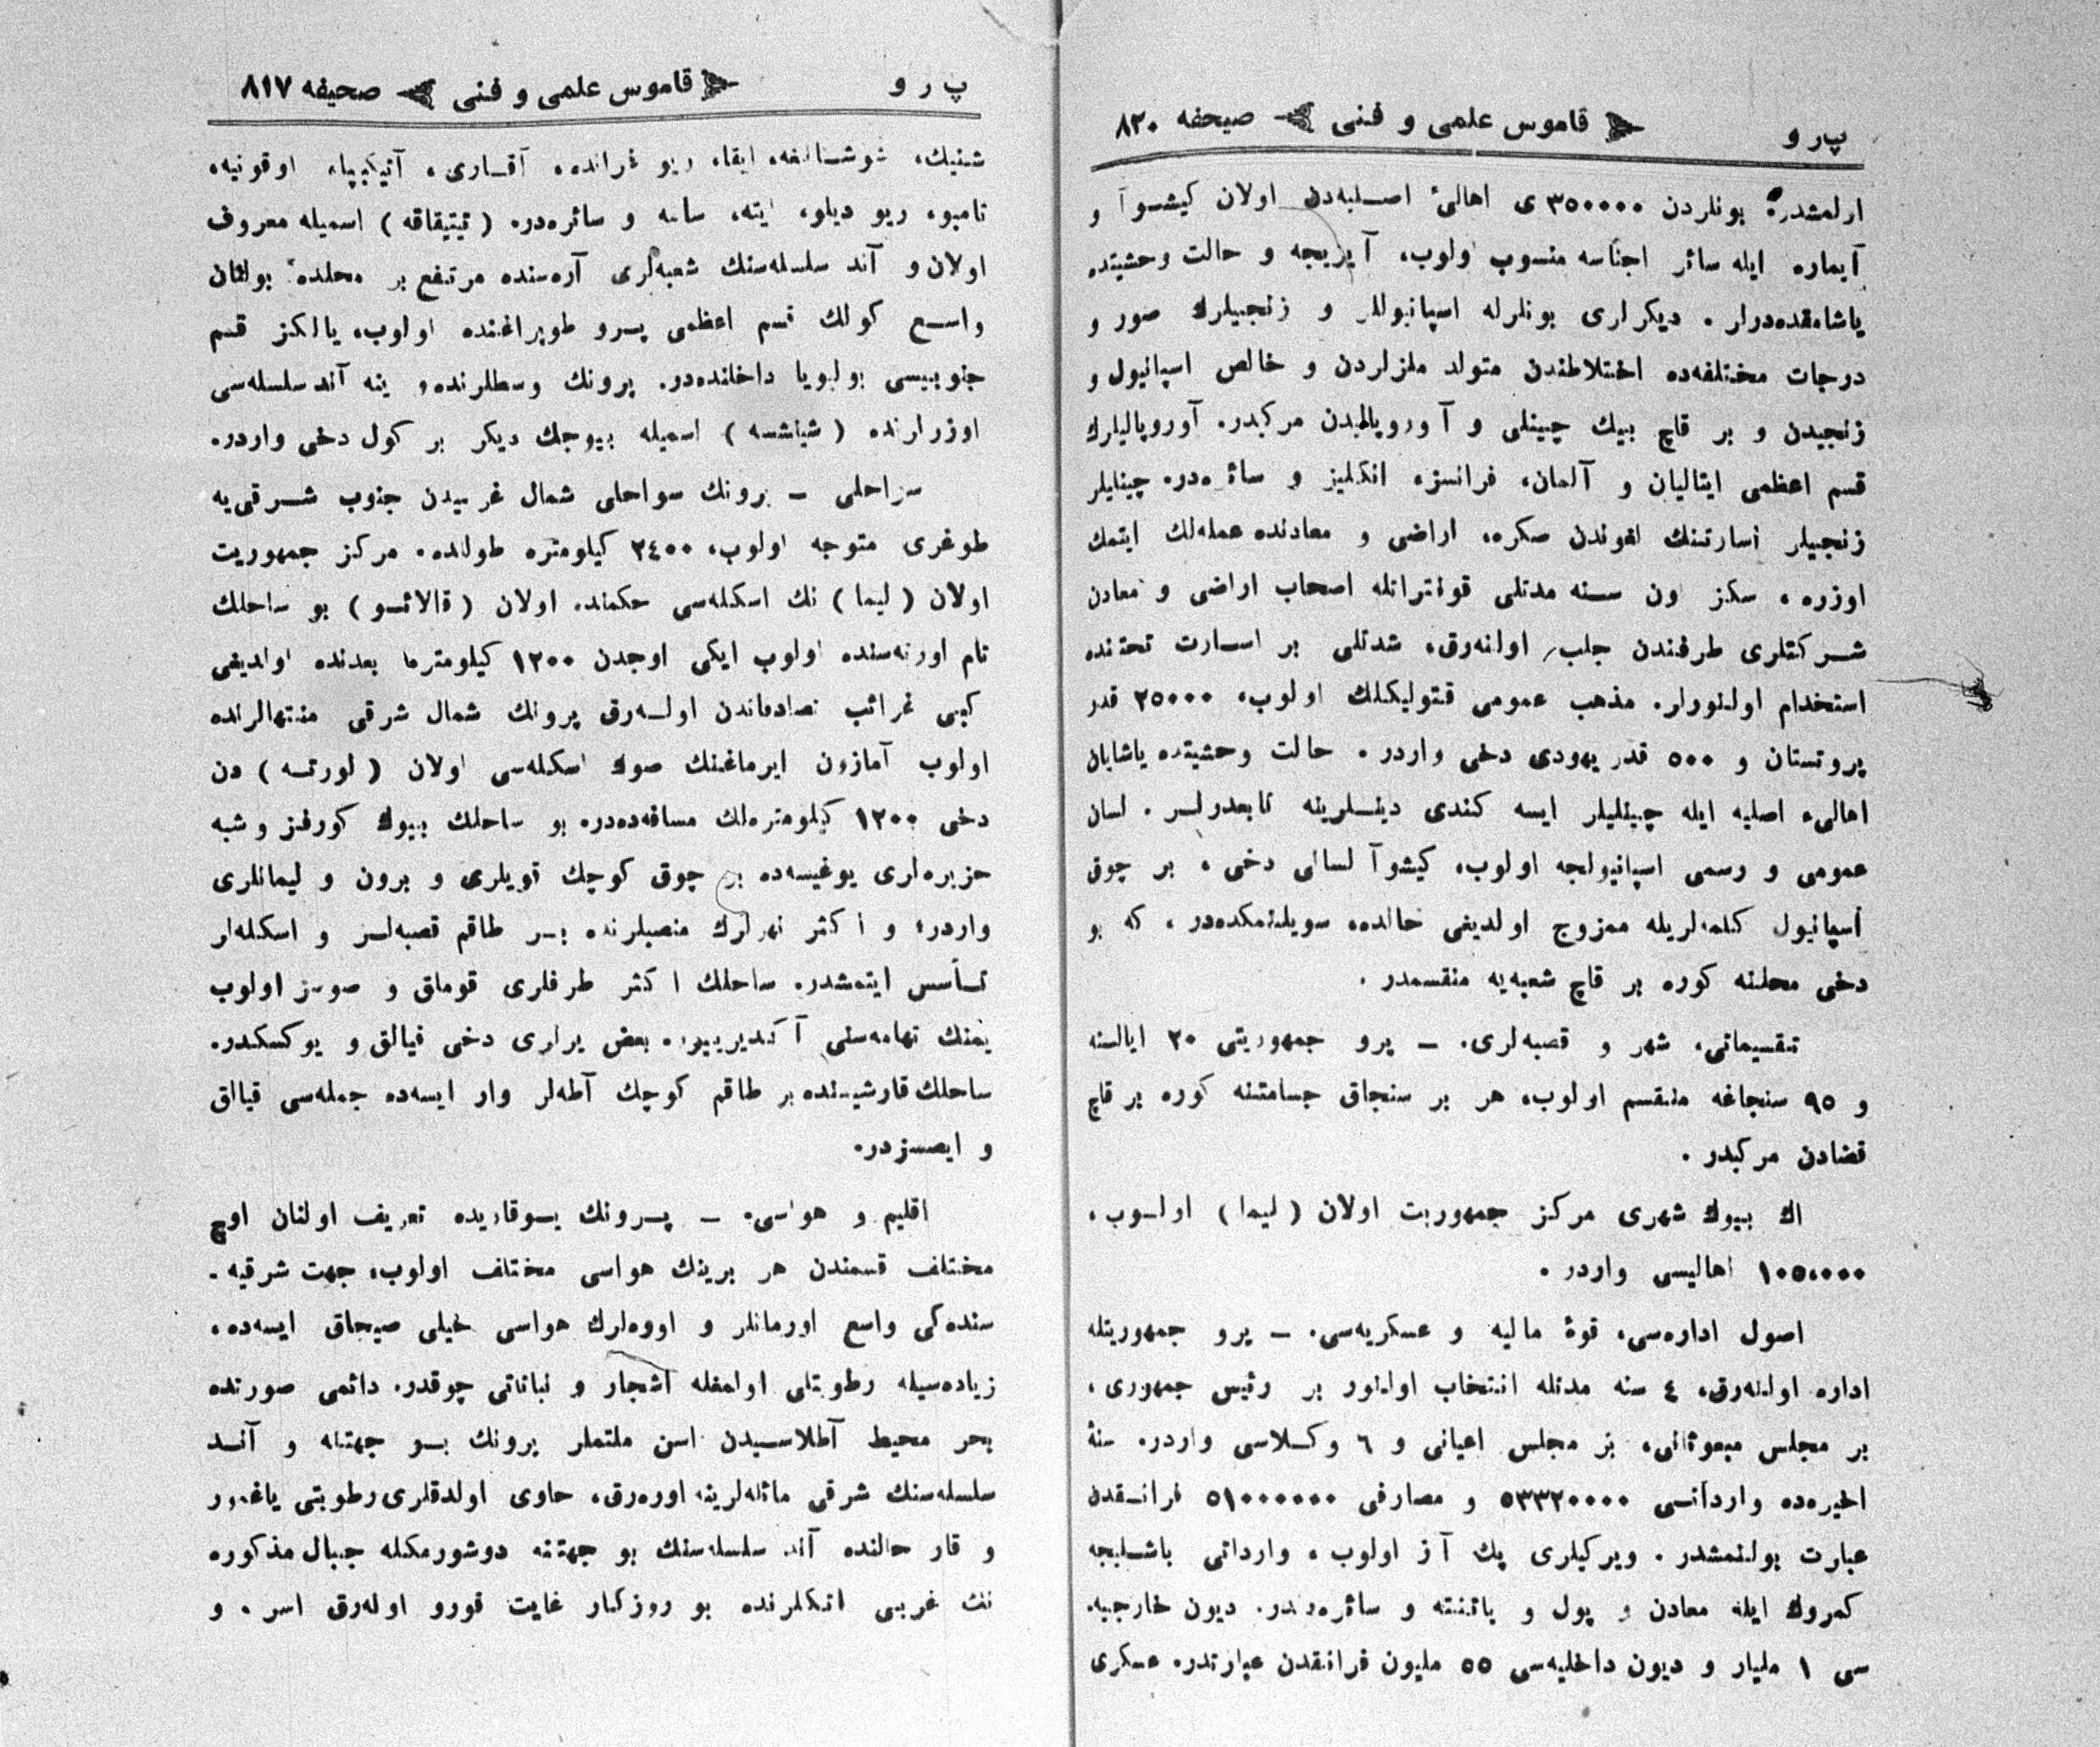 پ ر و    قاموس علمی و فنی    صیحفه ٨٢٠
ارلمشدر. بونلردن ٣٥٠٠٠٠ی اهالیٔ اصلیه‌دن اولان کیشوآ و
آیماره ایله سائر اجناسه منسوب اولوب، آیریجه و حالت وحشیتده
یاشامقده‌درلر . دیکرلری بونلرله اسپانیوللر و زنجیلرك صور و
درجات مختلفه‌ده اختلاطندن متولد ملزلردن و خالص اسپانیول و
زنجیدن و بر قاچ بیك چینلی و آوروپالیدن مرکبدر. آوروپالیلرك
قسم اعظمی ایتالیان و آلمان، فرانسز، انکلیز و سائره‌در. چینلیلر
زنجیلر اسارتنك لغوندن صکره، اراضی و معادنده عمله‌لك ایتمك
اوزره ، سکز اون سنه مدتلی قونتراتله اصحاب اراضی و معادن
شرکتلری طرفندن جلب اولنه‌رق، شدتلی بر اسارت تحتنده
استخدام اولنورلر. مذهب عمومی قتولیکلك اولوب، ٢٥٠٠٠ قدر
پروتستان و ٥٠٠ قدر یهودی دخی واردر . حالت وحشیتده یاشایان
اهالیء اصلیه ایله چینلیلر ایسه کندی دینلرینه تابعدرلر . لسان
عمومی و رسمی اسپانیولجه اولوب، کیشوآ لسانی دخی ، بر چوق
اسپانیول کلمه‌لریله ممزوج اولدیغی حالده، سویلنمکده‌در ، که بو
دخی محلنه کوره بر قاچ شعبه‌یه منقسمدر .
تقسیماتی، شهر و قصبه‌لری. ــ پرو جمهوریتی ٢٠ ایالته
و ٩٥ سنجاغه منقسم اولوب، هر بر سنجاق جسامتنه کوره بر قاچ
قضادن مرکبدر .
اك بیوك شهری مرکز جمهوریت اولان ( لیما ) اولوب ،
١٠٥،٠٠٠ اهالیسی واردر .
اصول اداره‌سی، قوهٔ مالیه و عسکریه‌سی. ــ پرو جمهوریتله
اداره اولنه‌رق، ٤ سنه مدتله انتخاب اولنور بر رئیس جمهوری ،
بر مجلس مبعوثانی، بر مجلس اعیانی و ٦ وکلاسی واردر. سنهٔ
اخیره‌ده وارداتی ٥٣٣٢٠٠٠٠ و مصارفی ٥١٠٠٠٠٠٠ فرانقدن
عبارت بولنمشدر . ویرکیلری پك آز اولوب ، وارداتی باشلیجه
کمروك ایله معادن و پول و پاتنته و سائره‌دندر. دیون خارجیه‌
سی ١ ملیار و دیون داخلیه‌سی ٥٥ ملیون فرانقدن عبارتدر. عسکری
پ ر و    قاموس علمی و فنی    صحیفه ٨١٧
شنیك، ریو غرانده، آقاری ، اوقونیه،
تامبو، ریو دیلو، ایته، سامه و سائره‌در. ( تیتیقاقه ) اسمیله معروف
اولان و آند سلسله‌سنك شعبه‌لری آره‌سنده مرتفع بر محلده بولنان
واسع کولك قسم اعظمی پرو طوپراغنده اولوب، یالکز قسم
جنوبیسی بولیویا داخلنده‌در. پرونك وسطلرنده، ینه آند سلسله‌سی
اوزرلرنده ( ) اسمیله بیوجك دیکر بر کول دخی واردر.
سواحلی ــ پرونك سواحلی شمال غربیدن جنوب شرقی‌یه
طوغری متوجه اولوب، ٢٤٠٠ کیلومتره طولنده. مرکز جمهوریت
اولان ( لیما ) نك اسکله‌سی حکمنده اولان ( قالائو ) بو ساحلك
تام اورته‌سنده اولوب ایکی اوجدن ١٢٠٠ کیلومتره بعدنده اولدیغی
کبی غرائب تصادفاتدن اوله‌رق پرونك شمال شرقی منتهالرنده
اولوب آمازون ایرماغنك صوك اسکله‌سی اولان ( لورته ) دن
دخی ١٢٠٠ کیلومتره‌لك مسافه‌ده‌در. بو ساحلك بیوك کورفز و شبه
جزیره‌لری یوغیسه‌ده بر چوق کوچك قویلری و برون و لیمانلری
واردر؛ و اکثر نهرلرك منصبلرنده بر طاقم قصبه‌لر و اسکله‌لر
تأسس ایتمشدر. ساحلك اکثر طرفلری قوملق و صوسز اولوب
یمنك تهامه‌سنی آکدیرییور. بعض یرلری دخی قیالق و یوکسکدر.
ساحلك قارشیسنده بر طاقم کوچك آطه‌لر وار ایسه‌ده جمله‌سی قیالق
و ایصسزدر.
اقلیم و هواسی. ــ پرونك یوقاریده تعریف اولنان اوچ
مختلف قسمندن هر برینك هواسی مختلف اولوب، جهت شرقیه ـ
سنده‌کی واسع اورمانلر و اووه‌لرك هواسی خیلی صیجاق ایسه‌ده،
زیاده‌سیله رطوبتلی اولمغله اشجار و نباتاتی چوقدر. دائمی صورتده
بحر محیط آطلاسیدن اسن ملتملر پرونك بو جهتنه و آند
سلسله‌سنك شرقی مائله‌لرینه اوره‌رق، حاوی اولدقلری رطوبتی یاغمور
و قار حالنده آند سلسله‌سنك بو جهتنه دوشورمکله جبال مذکوره
نك غربی اتکلرنده بو روزکار غایت قورو اوله‌رق اسر . و